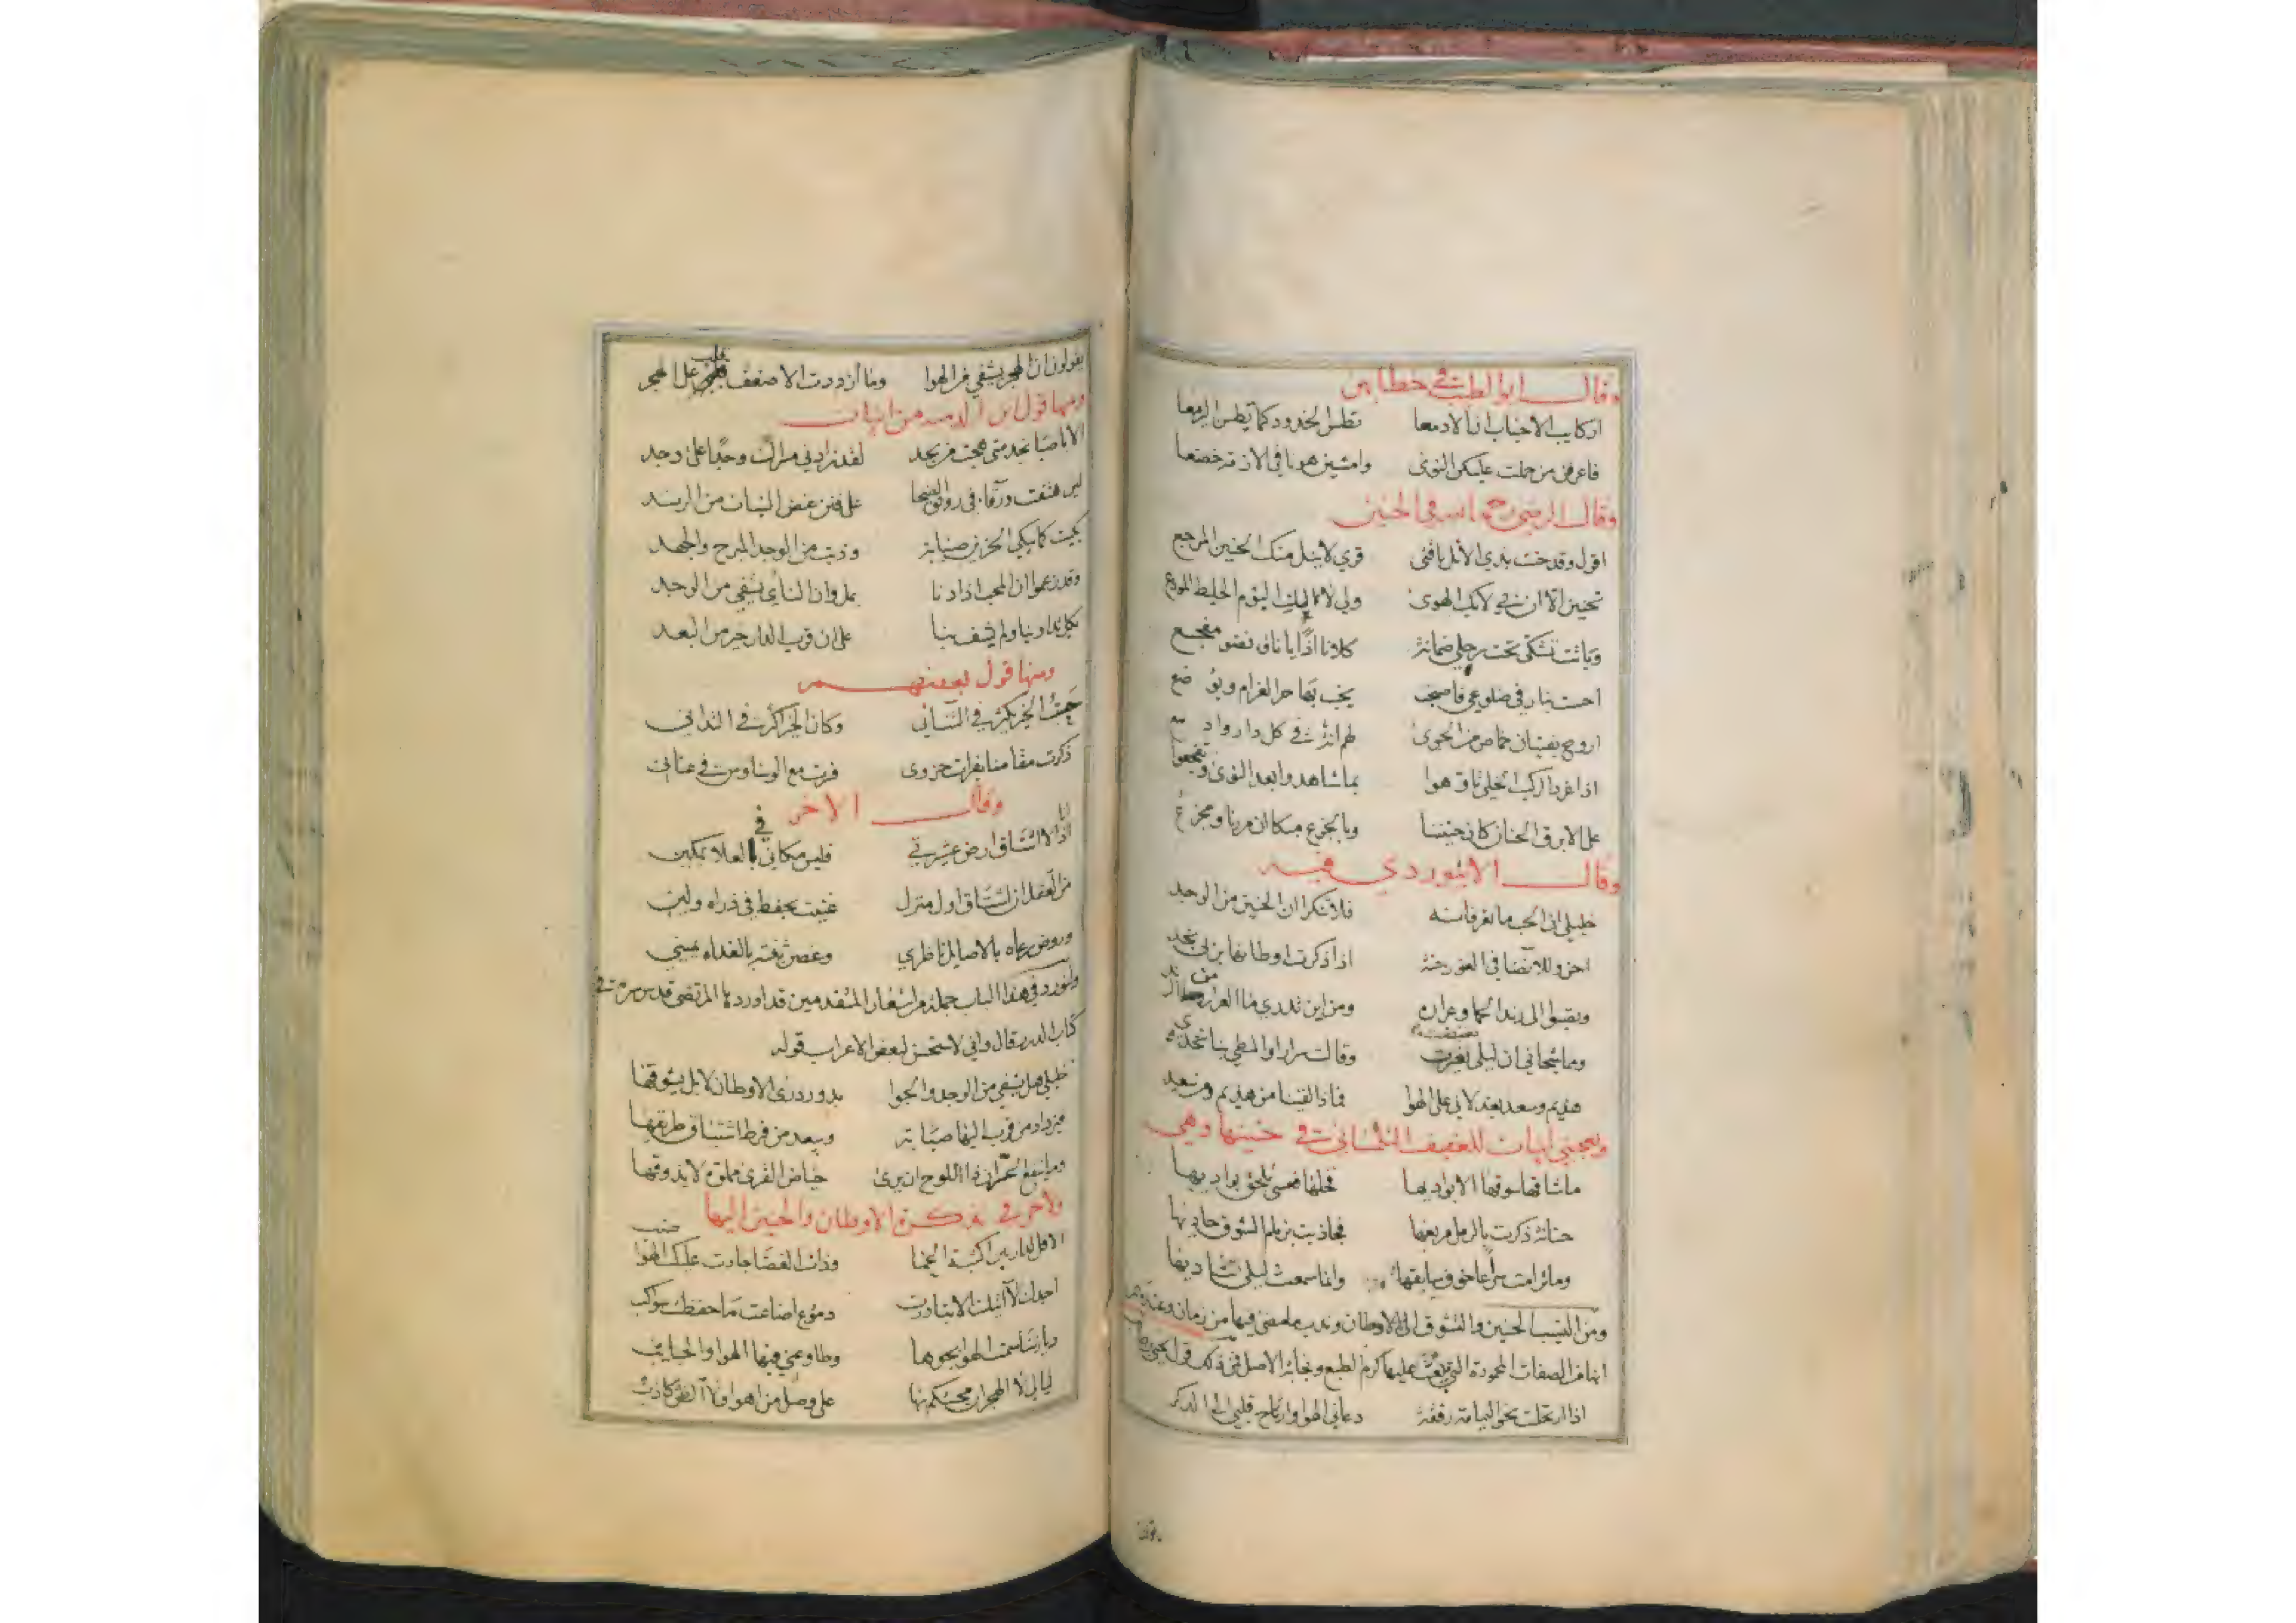 وقال ابو الطيب في خطابهن
اركايب الاحباب ان الادمعا تطس الخدود كما تطسن اليرمعا
فاعرفن من حملت عليكن النوى وامشين هونا في الازمة خضعا
وقال الرضي رحمه الله في الحنين
اقول وقد حنت بذي الاثل ناقتي قري لا ينل منك الحنين المرجع
تحنين الا ان بي لا بك الهوى ولي لا لك اليوم الخليط المودع
وباتت تشكى تحت رحلي ضمانة كلانا اذا يا ناق نضو مفجع
احست بنار في ضلوعي فاصبحت يخب بها حر الغرام ويوضع
اروح بفتيان خماص من الجوى لهم انة في كل دار وادمع
اذا غرد الركب الخلي تاوهوا بما شاهدوا بعد النوى وتفجعوا
على الابرق الحنان كان حنيننا وبالجزع مبكا ان مررنا ومجزع
وقال الابيوردي فيه
خليلي ان الحب ما تعرفانه فلا تنكرا ان الحنين من الوجد
احن وللانضا في الغور حنة اذا ذكرت اوطانها بربى نجد
وتصبوا الى رند الحما وعراره ومن اين تدري ما العرار من الرند
وما شجاني ان ليلى تغيرت وقالت سرارا والمطي بنا تخدي
هذيم وسعد بعد لاني على الهوا فماذا لقينا من هذيم ومن سعد
ويعجبني ابيات للعفيف التلمساني في حنينها وهي
ما شاقها سوقها الا بواديها فخلها فعسى تلحق بواديها
حنانة ذكرت بالرمل مربعها فجاذبت بزمام الشوق حاديها
وما ترامت سراعا خوف سايقها وانما سمعت ليلى تناديها
ومن النسيب الحنين والتشوق الى الاوطان وندب ما مضى فيها من زمان
الصفات المحمودة التي يبعث عليها كرم الطبع ونجابة الاصل فمن ذلك قول يحيى
اذا ارتحلت نحو اليمامة رفقة دعاني الهوا وارتاح قلبي الى الذكر
يقولون ان الهجر يشفي من الهوا وما ازددت الا ضعف قلب على الهجر
ومنها قول ابن الدمينه من ابيات
الا يا صبا نجد متى هجت من نجد لقد زادني مسراك وجدا على وجد
لئن هتفت ورقاء في رونق الضحا على فنن غض النبات من الرند
بكيت كما يبكي الحزين صبابة وذبت من الوجد المبرح والجهد
وقد زعموا ان المحب اذا دنا يمل وان الناي يشفي من الوجد
بكل تداوينا ولم يشف ما بنا على ان قرب الدار خير من البعد
ومنها قول بعضهم
ذكرت مقامنا بفرات حزوى
وقال الاخر
اذا انا لا اشتاق ارض عشيرتي فليس مكاني في العلا بمكين
من العقل ان اشتاق اول منزل غنيت بخفض في ذراه ولين
وروض رعاه بالاصايل ناظري وغصن ثنته بالغداة يميني
ولنورد في هذا الباب جملة من اشعار المتقدمين قد اوردها المرتضى قدس سره في
كتاب الدرر قال واني لاستحسن لبعض الاعراب قوله
خليلي هل يشفي من الوجد والجوا بدو ورد ذرى الاوطان لا بل يشوقها
ويزداد من قرب اليها صبابة ويبعد من فرط اشتياق طريقها
وما ينفع الحران ذا اللوح ان يرى حياض القرى مملوة لا يذوقها
ولاخر في تذكرة الاوطان والحنين اليها
الا قل لدار بين اكثبة الحما وذات الغضا جادت عليك الهواضب
اجدك لا اتيك الا تبادرت دموع اضاعت ما حفظت سواكب
ديار تناسمت الهوا بجوها وطاوعني فيها الهوا والحبايب
ليالي لا الهجران محتكم بها على وصل من اهوا ولا الظن كاذب